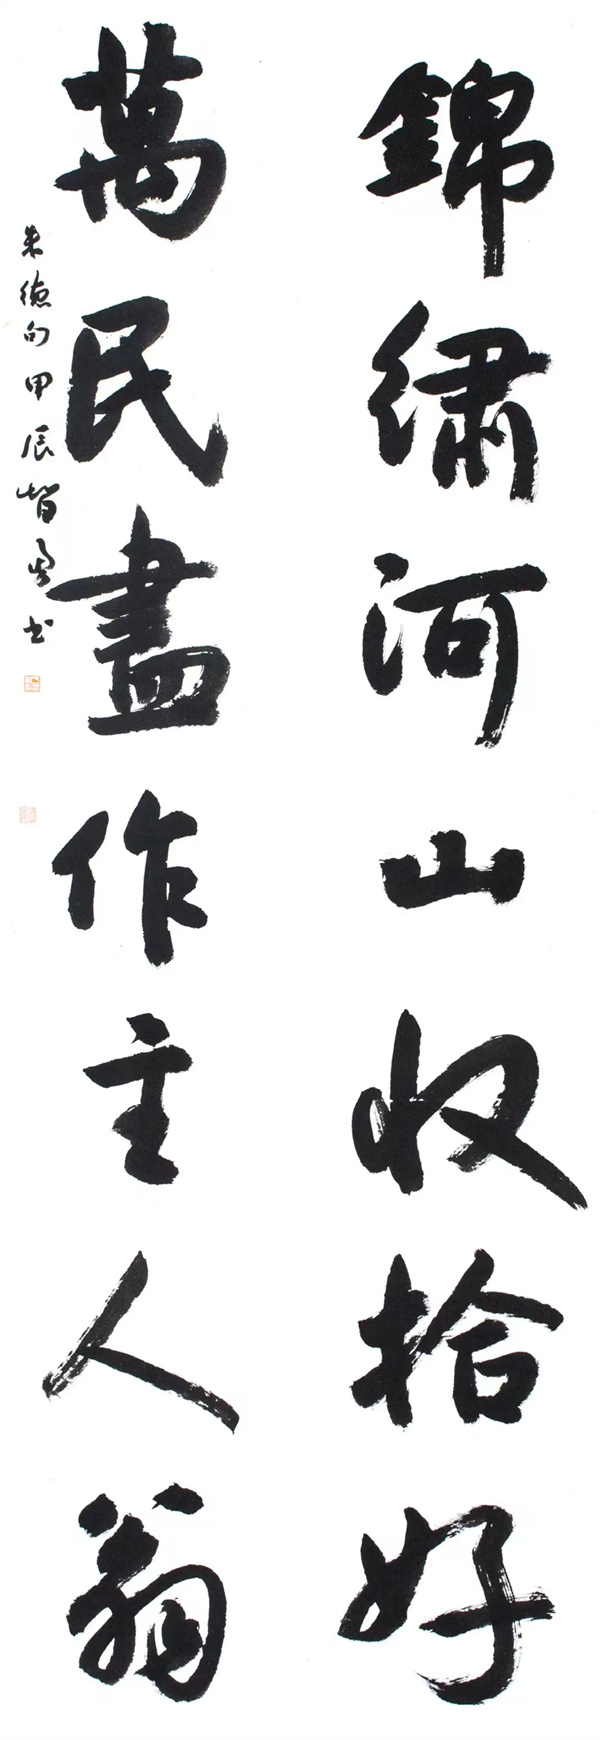 錦繡河山收拾好
萬民盡作主人翁
朱德句甲辰智勇书